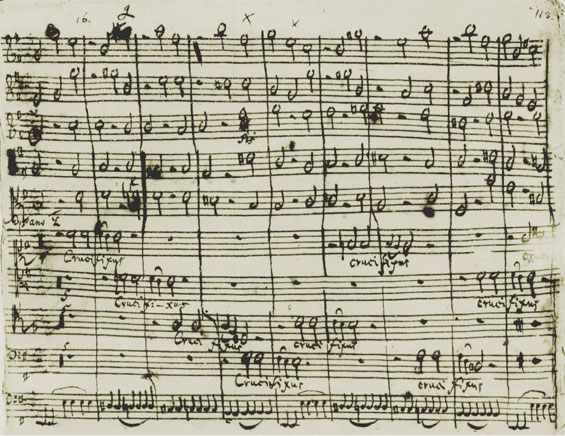 16.
Crucifixus crucifixus
Crucifi-xus crucifixus
Cruci fixus cruci fixus
Crucifixus cruci fixus